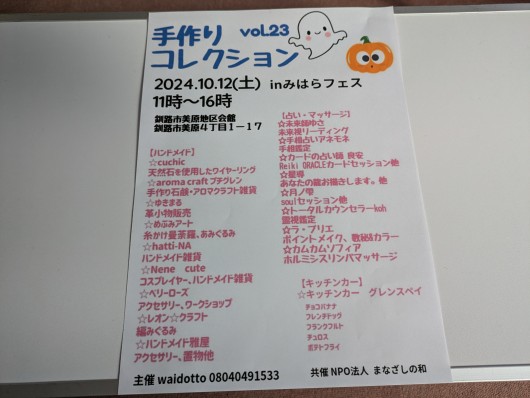 手作り vol.23
コレクション
2024.10.12(土) inみはらフェス
11時～16時
釧路市美原地区会館
釧路市美原４丁目１－１７
【ハンドメイド】
☆cuchic
天然石を使用したワイヤーリング
☆aroma craft プチグレン
手作り石鹸・アロマクラフト雑貨
☆ゆきまる
革小物販売
☆めぶみアート
糸かけ曼荼羅、あみぐるみ
☆hatti-NA
ハンドメイド雑貨
☆Nene cute
コスプレイヤー、ハンドメイド雑貨
☆ベリーローズ
アクセサリー、ワークショップ
☆レオン☆クラフト
編みぐるみ
☆ハンドメイド雅屋
アクセサリー、置物他
【占い・マッサージ】
☆未来師ゆさ
未来視リーディング
☆手相占いアネモネ
手相鑑定
☆カードの占い師 良安
Reiki ORACLEカードセッション他
☆星導
あなたの龍お描きします。他
☆月ノ雫
soulセッション他
☆トータルカウンセラーkoh
霊視鑑定
☆ラ・プリエ
ポイントメイク、数秘&カラー
☆カムカムソフィア
ホルミシスリンパマッサージ
【キッチンカー】
☆キッチンカー グレンスペイ
チョコバナナ
フレンチドッグ
フランクフルト
チュロス
ポテトフライ
主催 waidotto 08040491533
共催 NPO法人 まなざしの和